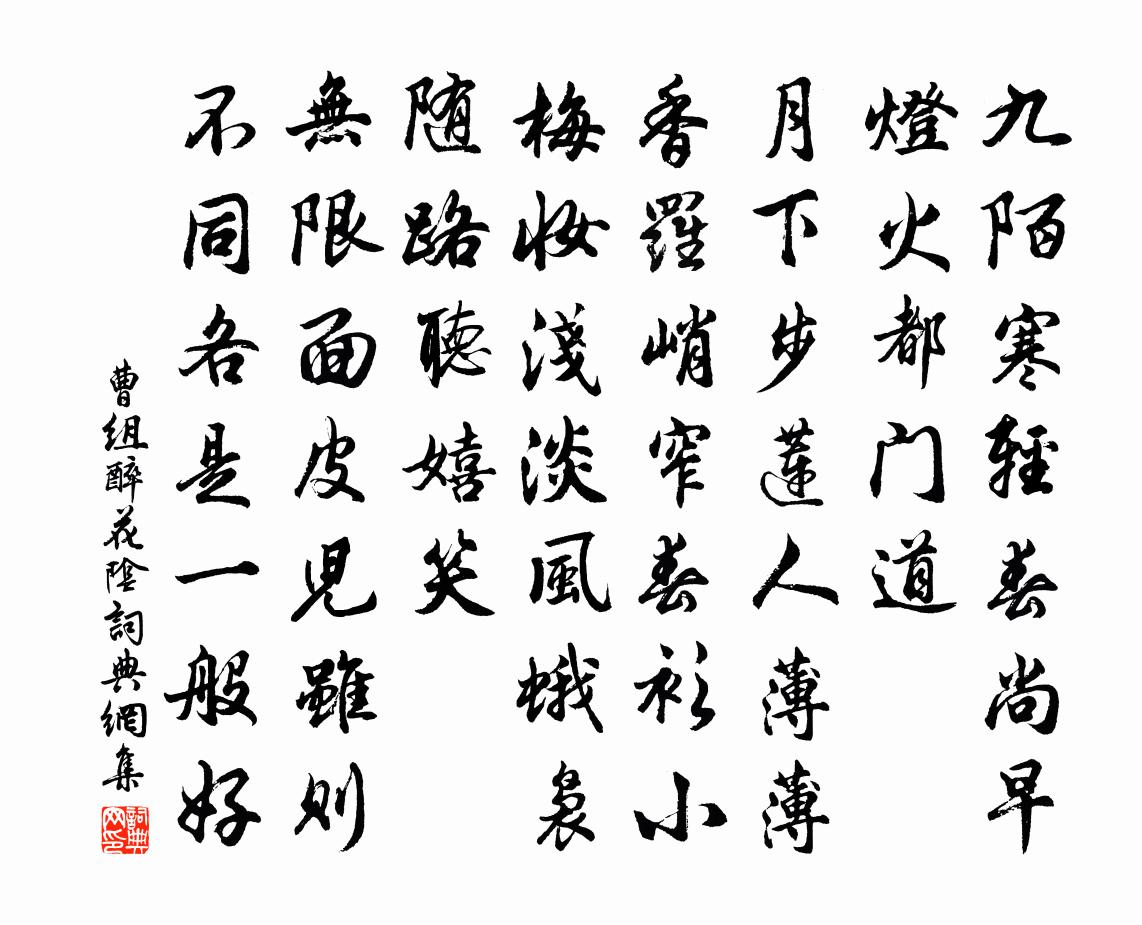 九陌寒輕春尚早
燈火都门道
月下步蓮人薄薄
香羅峭窄春衫小
梅妝淺淡風蛾裊
随路聽嬉笑
無限面皮児雖則
不同各是一般好
曹組醉花陰詞典網集
詞典网印